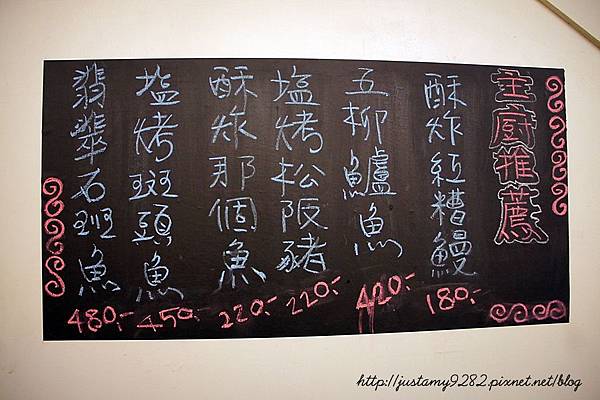 主廚推薦
酥炸紅糟鰻 180.-
五柳鱸魚 420.-
塩烤松阪豬 220.-
酥炸那個魚 220.-
塩烤斑頭魚 450.-
翡翠石斑魚 480.-
http://justamy9282.pixnet.net/blog